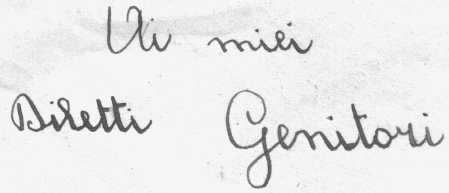 Ai miei
Diletti Genitori